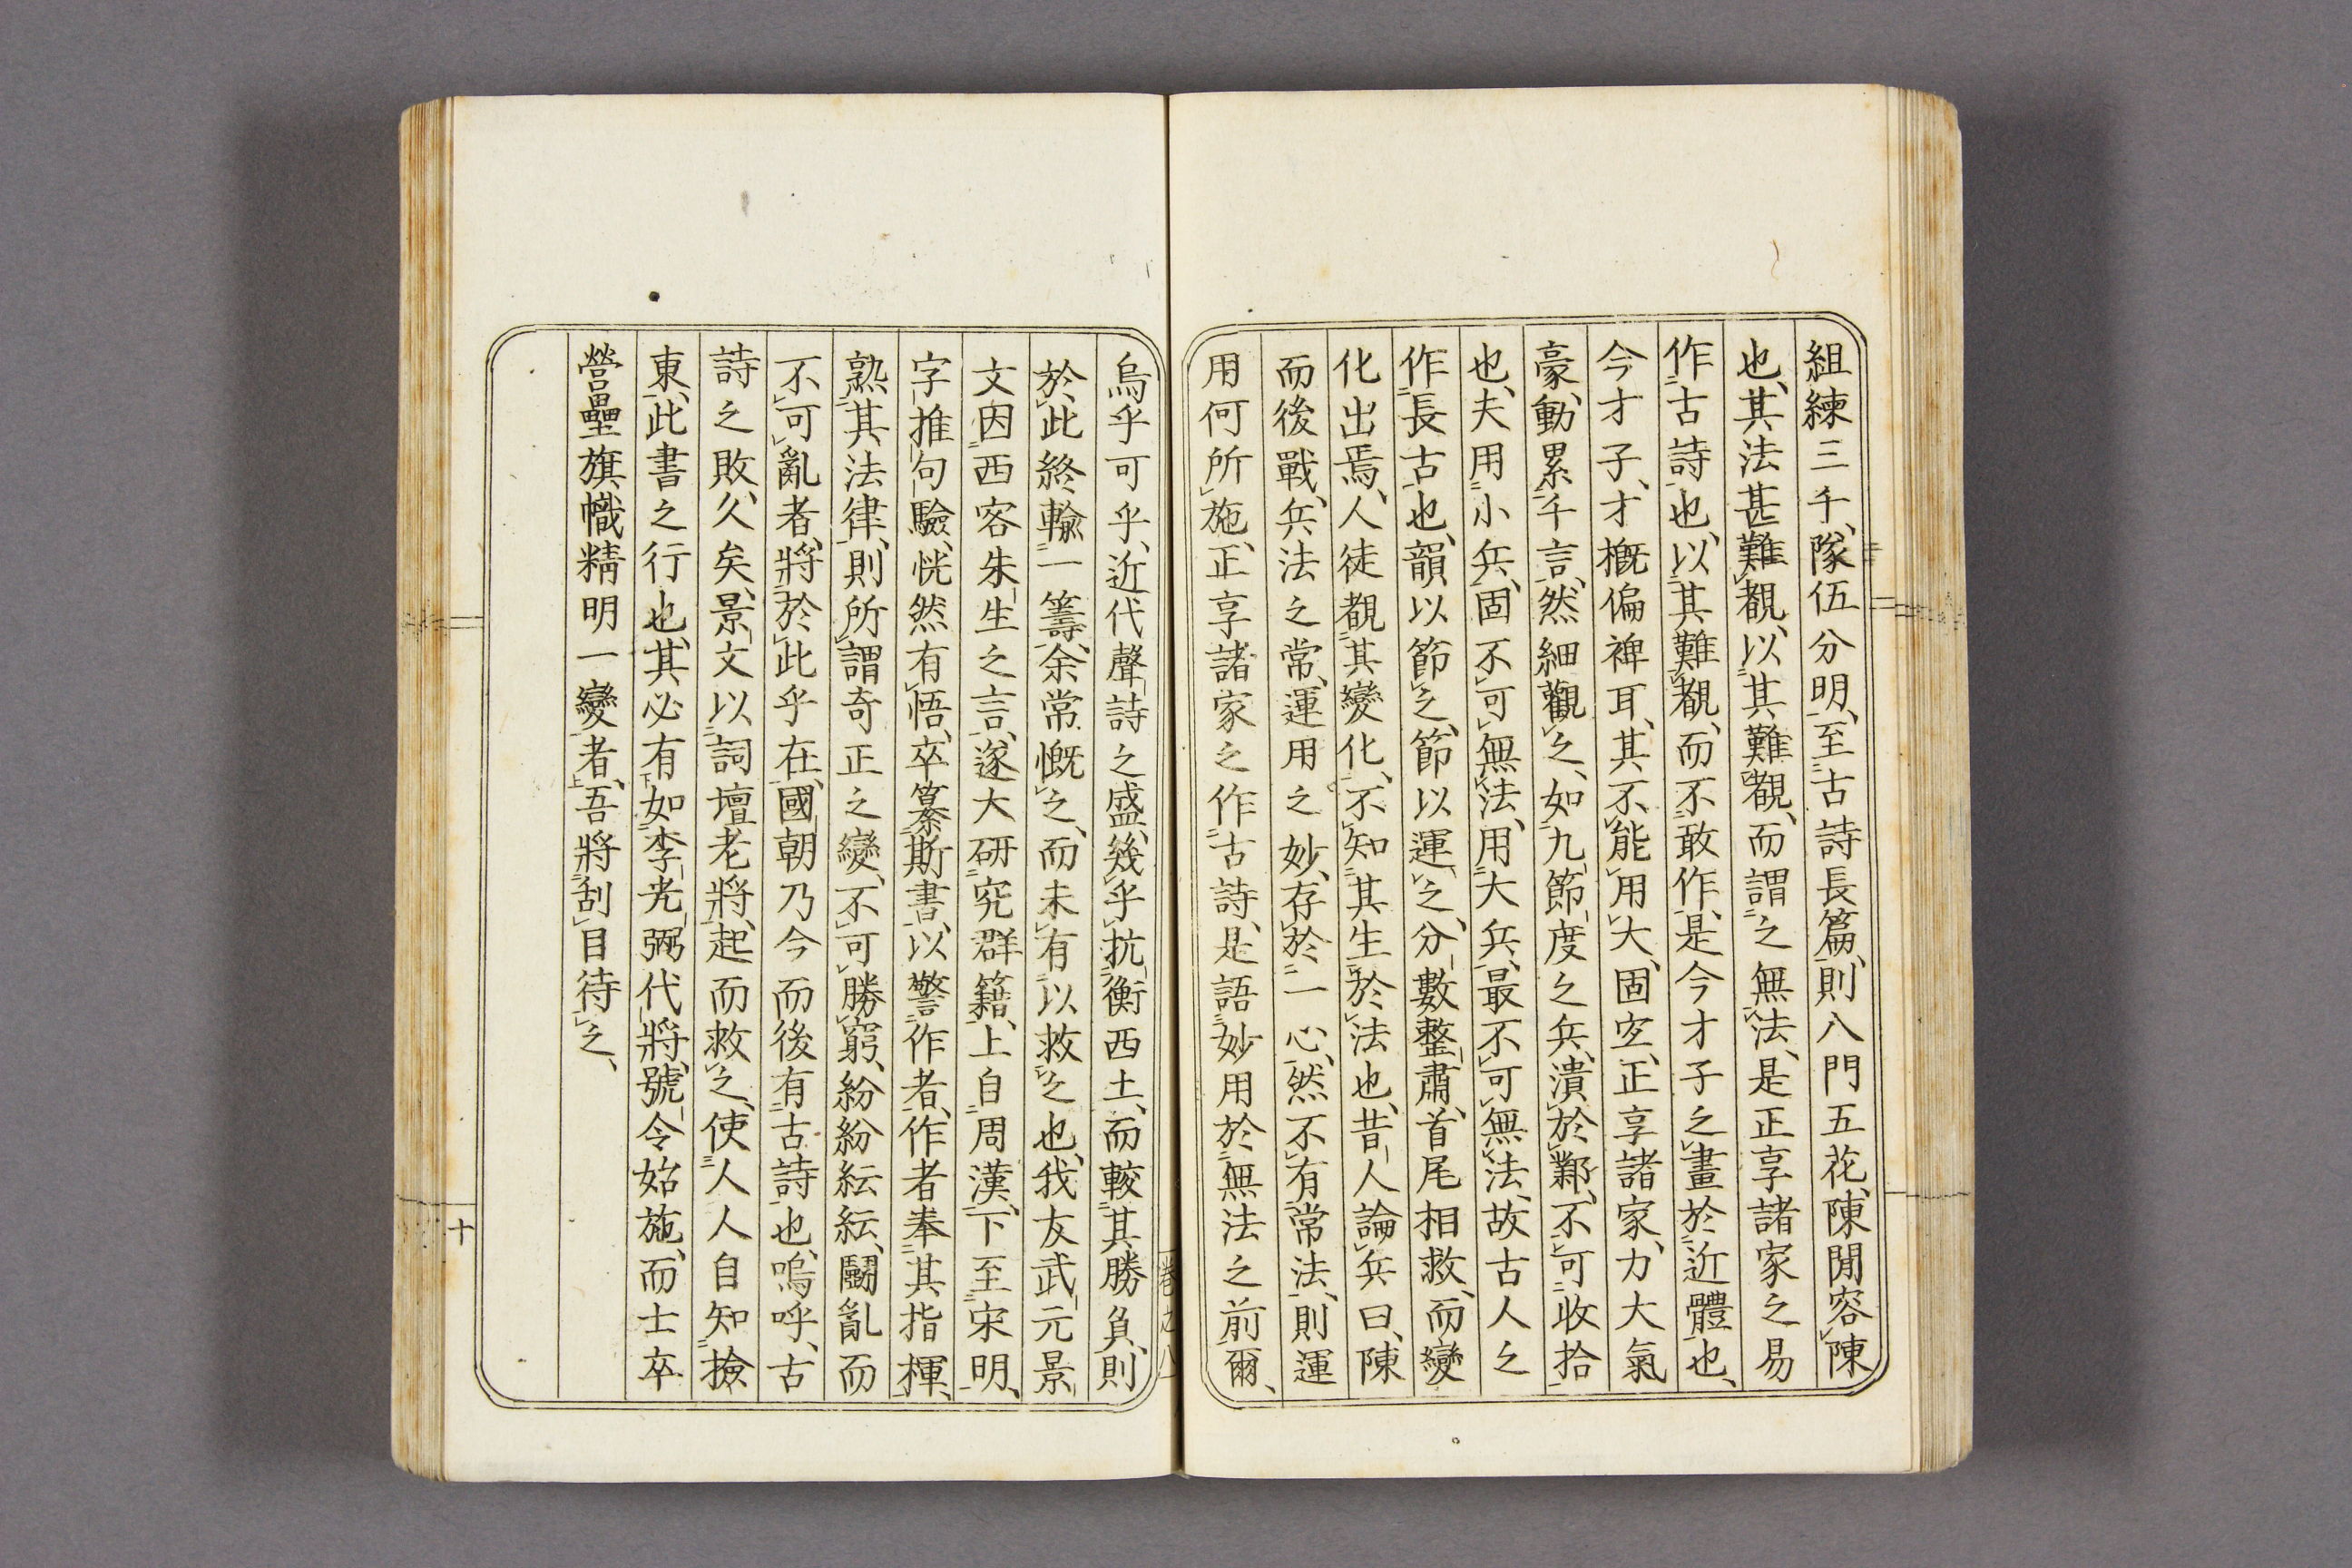 組練三千、隊伍分明、至古詩長篇、則八門五花、陳閒容陳
也、其法甚難覩、以其難覩、而謂之無法、是正享諸家之易
作古詩也、以其難覩、而不敢作、是今才子之畫於近體也、
今才子、才概偏裨耳、其不能用大、固宜、正享諸家、力大氣
豪、動累千言、然細觀之、如九節度之兵、潰於鄴、不可收拾
也、夫用小兵、固不可無法、用大兵、最不可無法、故古人之
作長古也、韻以節之、節以運之、分數整肅、首尾相救、而變
化出焉、人徒覩其變化、不知其生於法也、昔人論兵曰、陳
而後戰、兵法之常、運用之妙、存於一心、然不有常法、則運
用何所施、正享諸家之作古詩、是語妙用於無法之前爾、
烏乎可乎、近代聲詩之盛、幾乎抗衡西土、而較其勝負、則
於此終輸一籌、余常慨之、而未有以救之也、我友武元景
文因西客朱生之言、遂大研究群籍、上自周漢、下至宋明、
字推句驗、恍然有悟、卒纂斯書、以警作者、作者奉其指揮、
熟其法律、則所謂奇正之變、不可勝窮、紛紛紜紜、鬪亂而
不可亂者、將於此乎在、國朝乃今而後有古詩也、嗚呼、古
詩之敗久矣、景文以詞壇老將、起而救之、使人人自知撿
束、此書之行也、其必有如李光弼代將、號令始施、而士卒
營壘旗幟精明一變者、吾將刮目待之、
卷之八
十